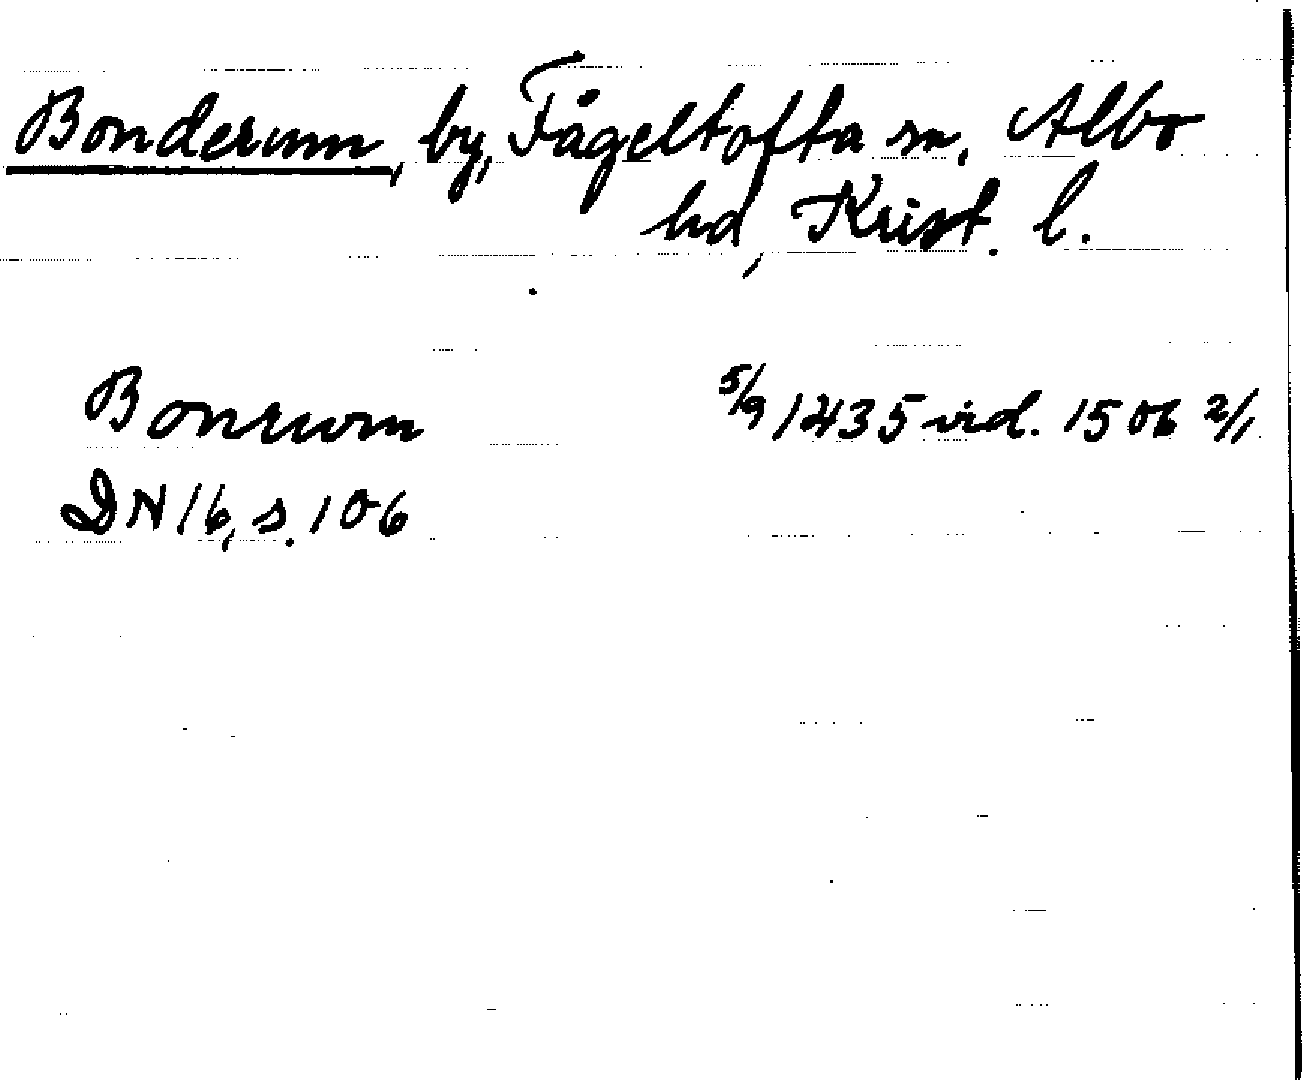 Bonderum, by, Fågeltofta sn, Albo
hd, Krist. l.
Bonrwm 5/9 1435 vid. 1506 2/1
DN 16, s. 106